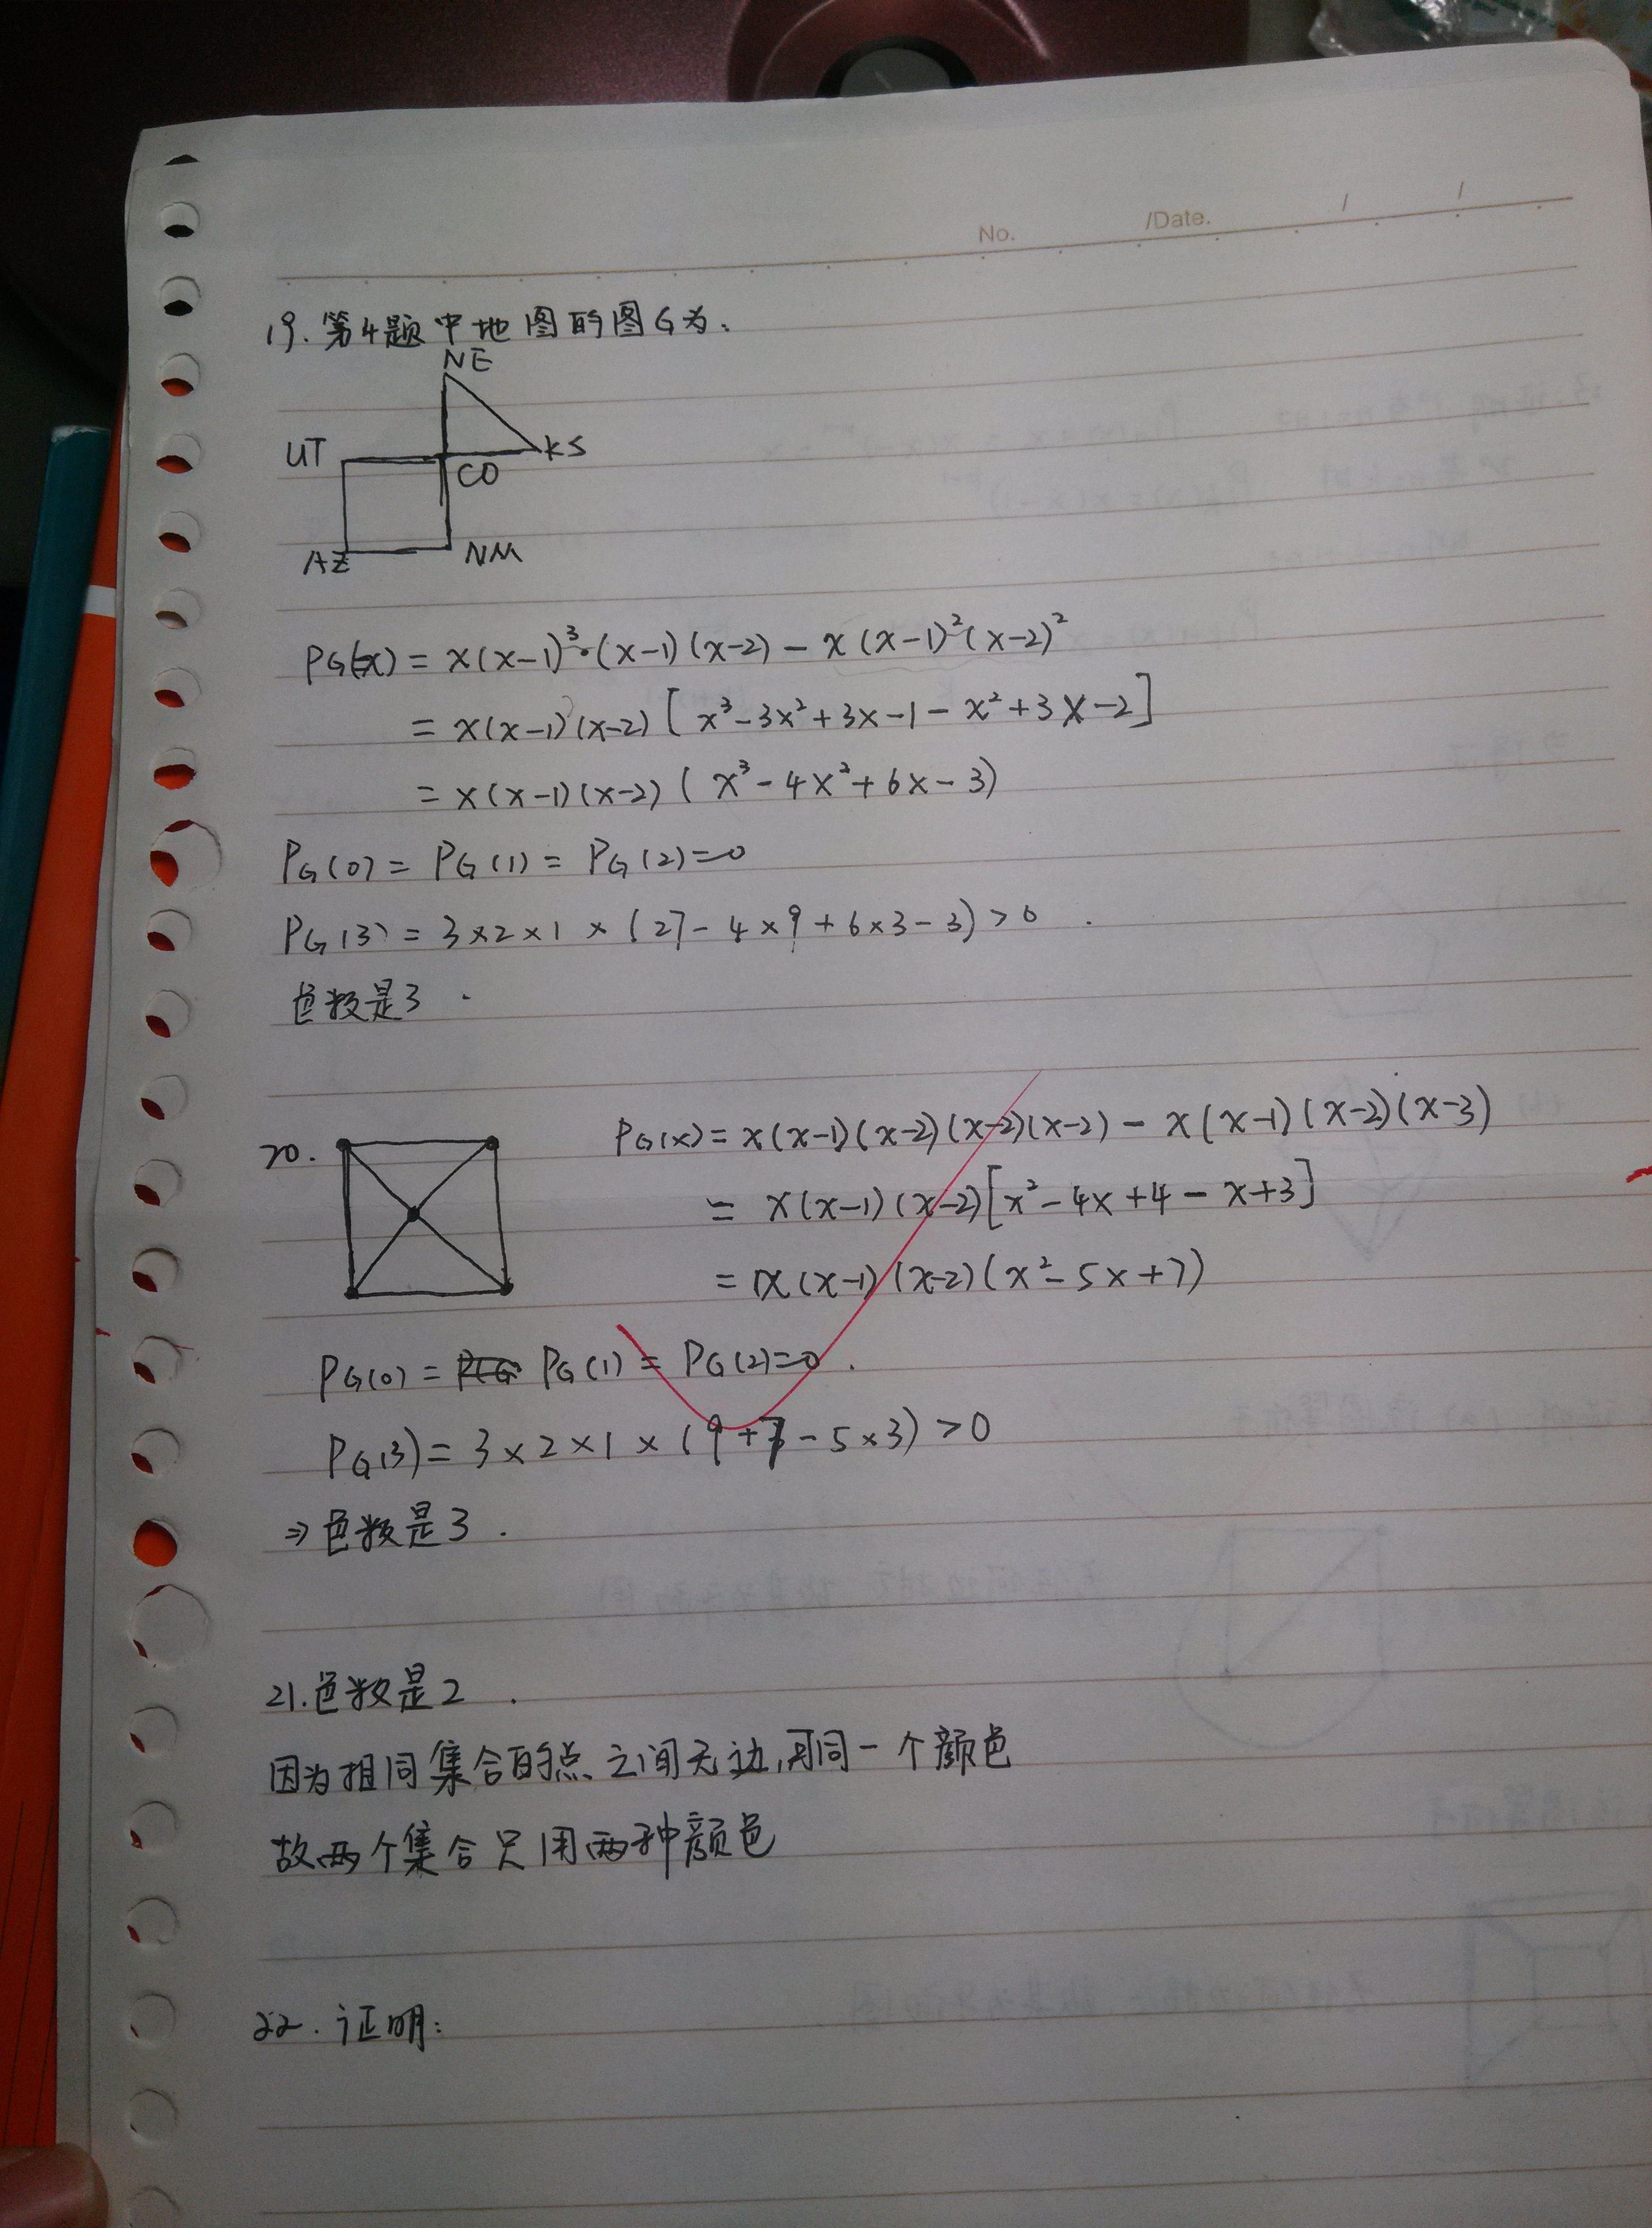 No. /Date. / /
19. 第4题中地图的图G为:
NE
UT KS
CO
AZ NM
PG(x) = x(x-1)³·(x-1)(x-2) - x(x-1)²(x-2)²
= x(x-1)(x-2)[x³-3x²+3x-1-x²+3x-2]
= x(x-1)(x-2)(x³-4x²+6x-3)
PG(0) = PG(1) = PG(2)=0
PG(3) = 3×2×1×(27-4×9+6×3-3)>0
色数是3.
20. PG(x) = x(x-1)(x-2)(x-2)(x-2) - x(x-1)(x-2)(x-3)
= x(x-1)(x-2)[x²-4x+4-x+3]
= x(x-1)(x-2)(x²-5x+7)
PG(0) = PG(1) = PG(2)=0.
PG(3) = 3×2×1×(9+7-5×3)>0
⇒色数是3.
21.色数是2.
因为相同集合的点之间无边,可同一个颜色
故两个集合只用两种颜色
22. 证明: